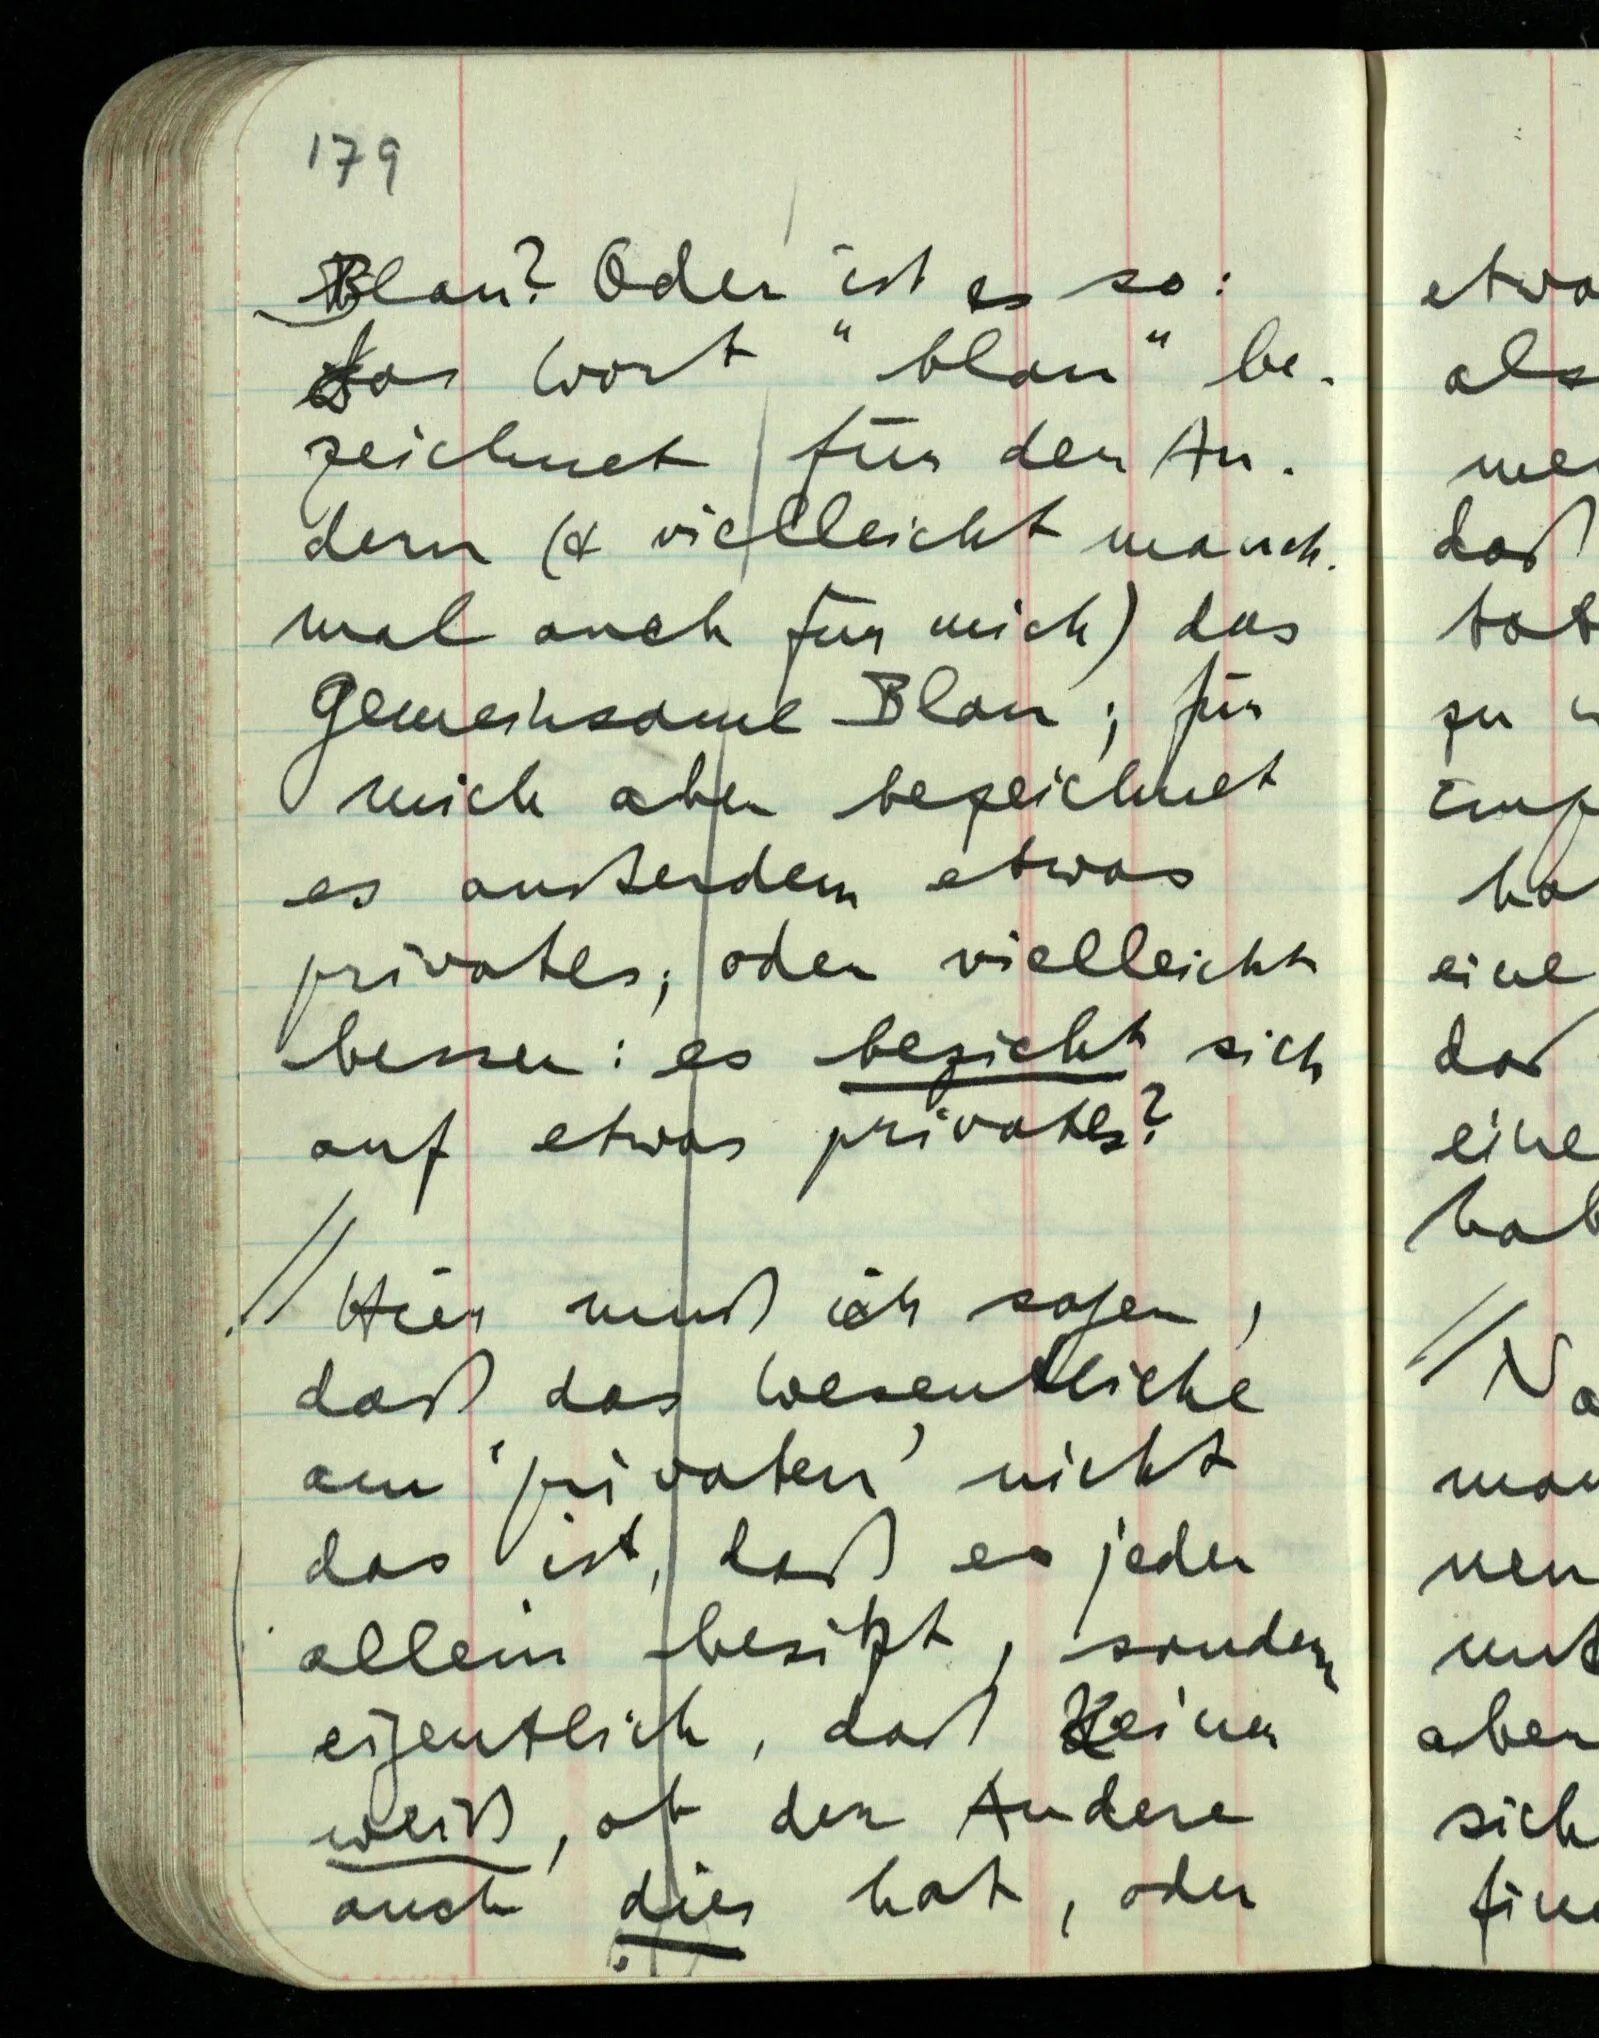 179
Blau? Oder ist es so:
das Wort "blau" be-
zeichnet für den An-
dern (& vielleicht manch-
mal auch für mich) das
gemeinsame Blau; für
mich aber bezeichnet
es außerdem etwas
privates; oder vielleicht
besser: es bezieht sich
auf etwas privates?
// Hier muß ich sagen,
daß das Wesentliche
am 'privaten' nicht
das ist, daß es jeder
allein besitzt, sondern
eigentlich, daß Keiner
weiß, ob der Andere
auch dies hat, oder
etwa
als
daß
zu
eine
eine
//
aber
sich